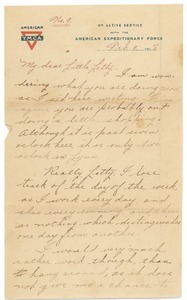 No. 9.
AMERICAN
YMCA
ON ACTIVE SERVICE
WITH THE
AMERICAN EXPEDITIONARY FORCE
My dear Little Letty,
I am won-
dering what you are doing now
as I sit here writing
you are probably out
Although it is past seven
oclock here it is only
oclock in Lynn
Really Letty I lose
track of the day of the week
as I work every day and
as nothing which distinguishes
one day from another
I would very much
rather work though, than
to hang around, as it does
not give me a chance to